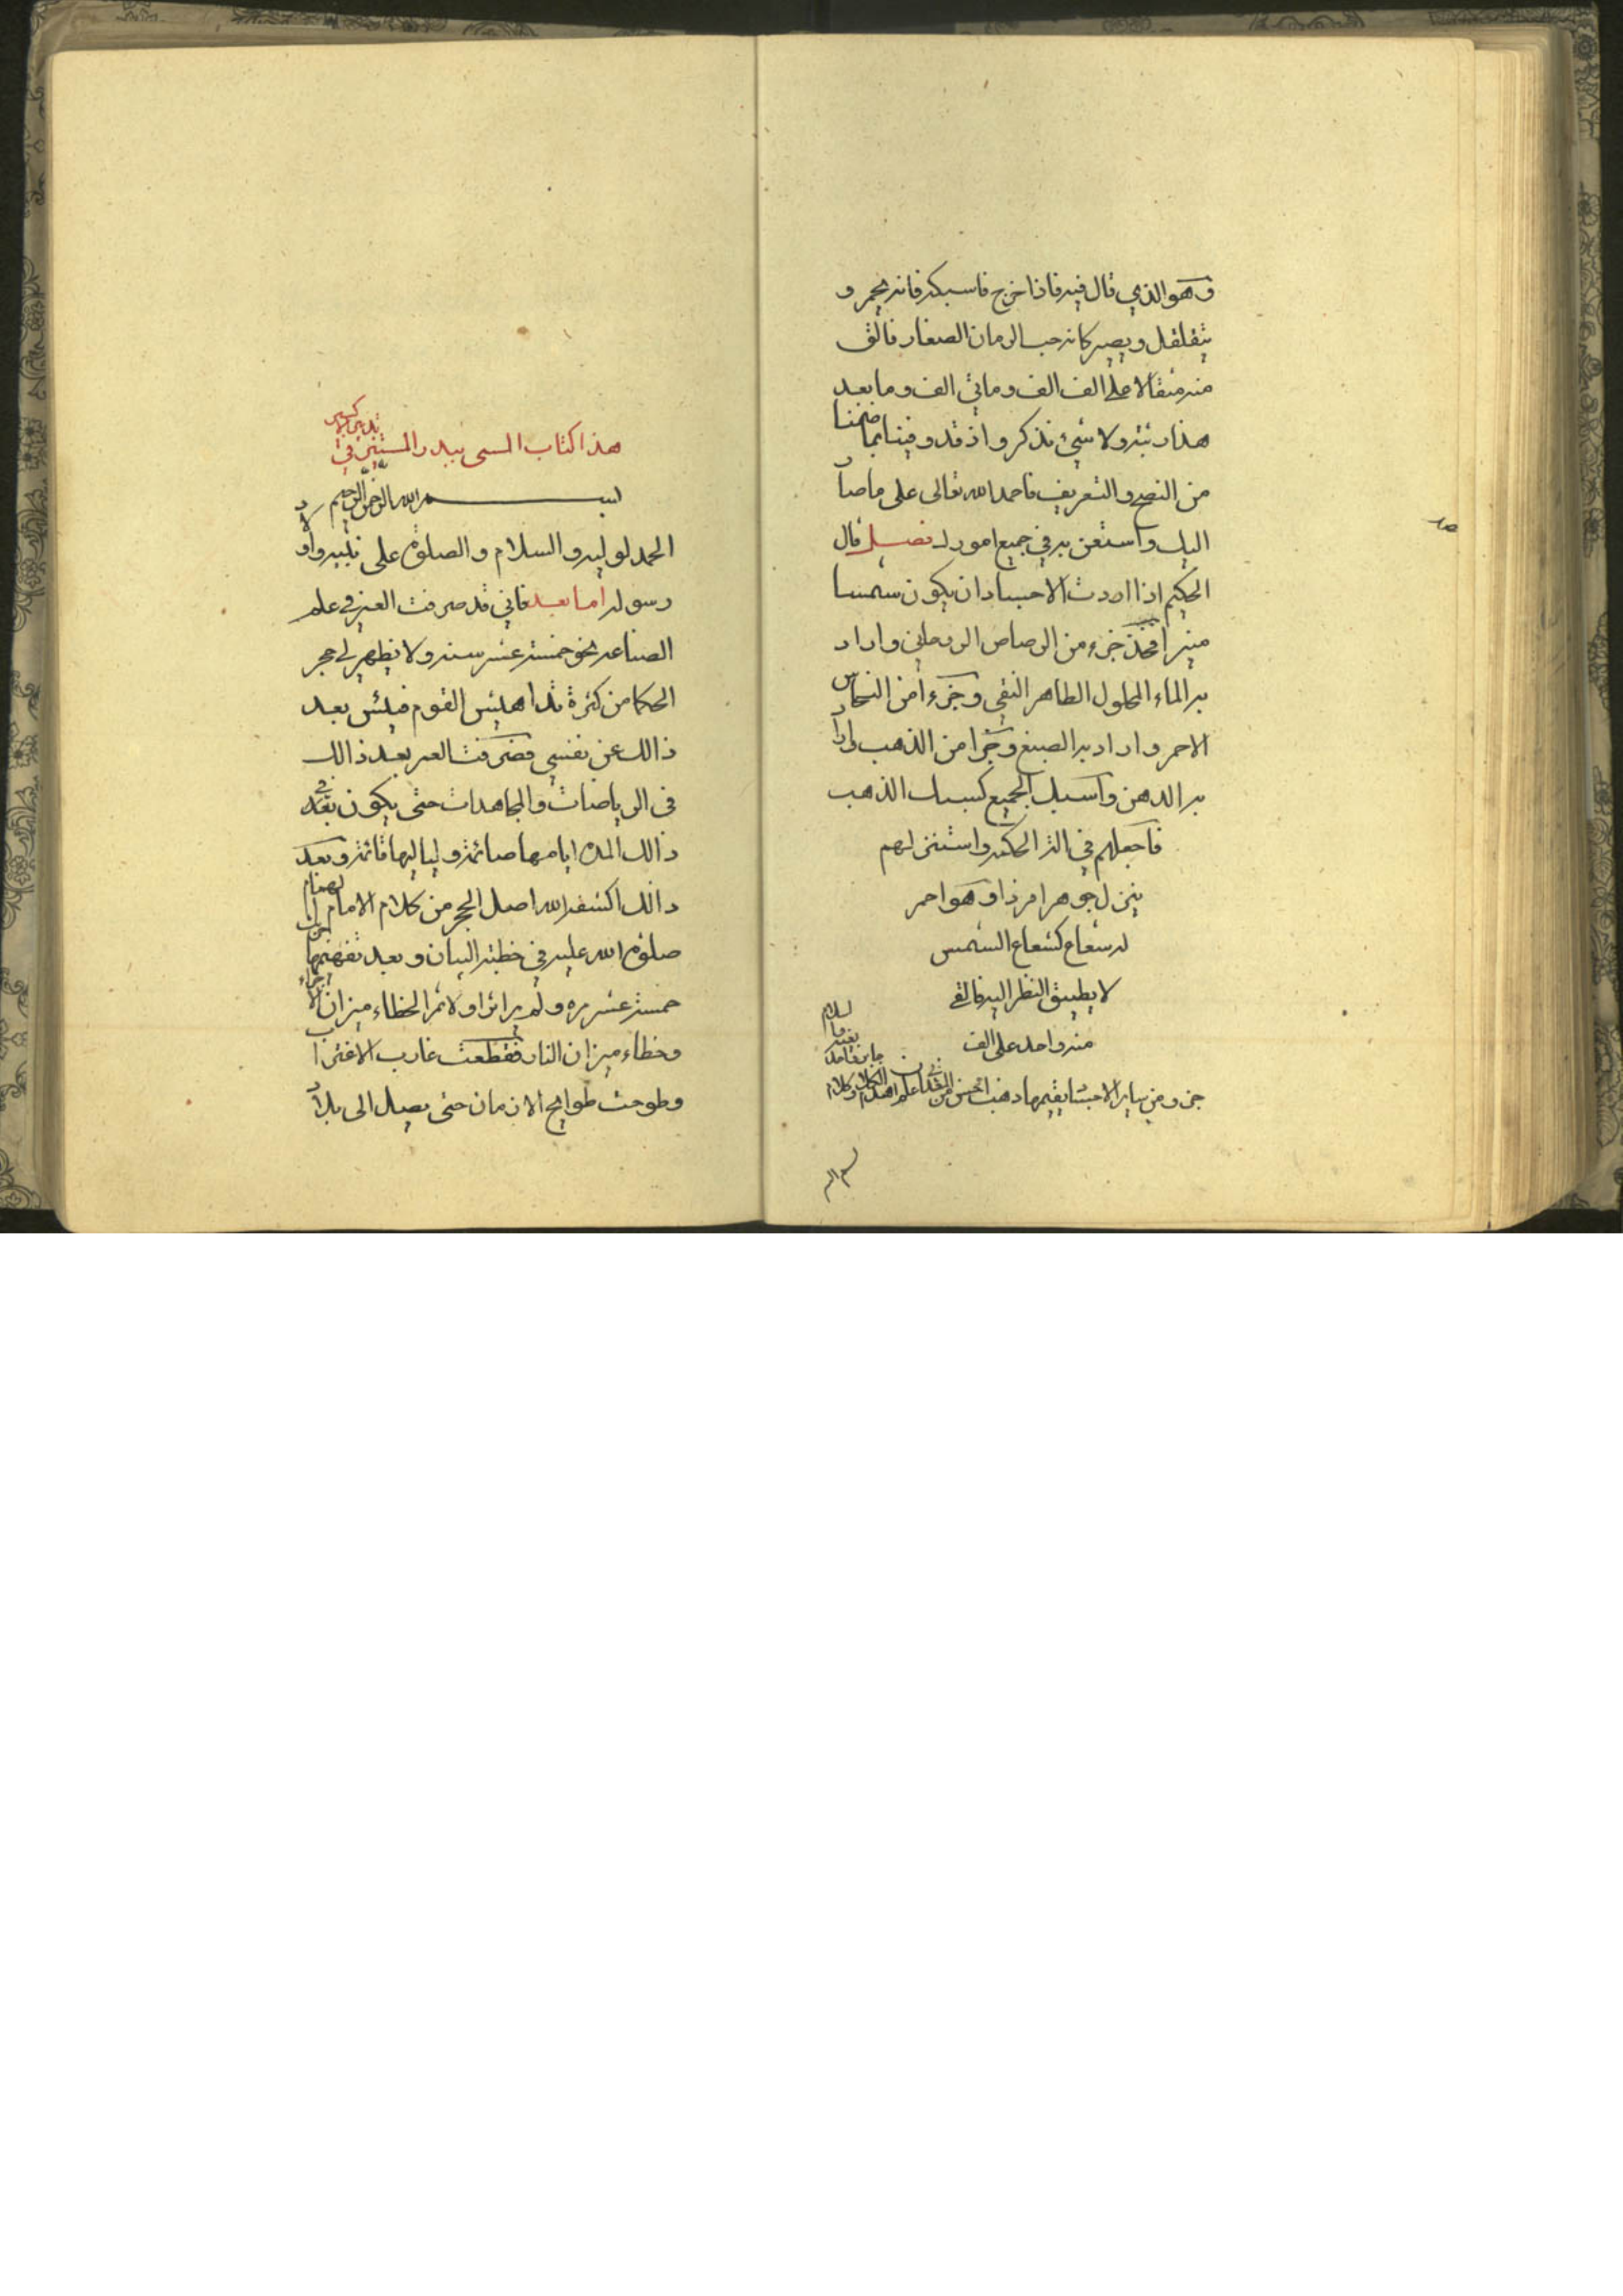 وهو الذي قال فيه فاذا خرج فاسبكه فانه يحمر و
يتقلقل ويصير كانه حب الرمان الصغار فالق
منه مثقالا على الف الف وماتي الف وما بعد
هذا رتبة ولا شيئ نذكره اذ قد وفينا بما ضمنا
من النصح والتعريف فاحمد الله تعالى على ما صار
اليك واستعن به في جميع امورك فصل قال
الحكيم اذا اردت الاجساد ان يكون شمسا
منيرا فخذ جزء من الرصاص الروحاني واراد
به الماء المحلول الطاهر النقي وجزءا من النحاس
الاحمر واراد به الصبغ وجزا من الذهب واراد
به الدهن واسبك الجميع كسبك الذهب
فاجعلهم في الة الحكمة واستنزلهم
ينزل جوهرا مرذا وهو احمر
له شعاع كشعاع الشمس
لا يطيق النظر اليه فالق
منه واحد على الف
جزو من ساير الاجساد يقيمها ذهبا احسن من
هذا كتاب المسمى ببدر المستنير في تدبير الاكسير
بسم الله الرحمن الرحيم
الحمد لوليه والسلام والصلوة على نبيه واولاد
رسوله اما بعد فاني قد صرفت العمر في علم
الصناعه نحو خمسة عشر سنه ولا يظهر لي حجر
الحكما من كثرة تداهيش القوم فيئس بعد
ذالك عن نفسي فصرفت العمر بعد ذالك
في الرياضات والمجاهدات حتى يكون بقي بعد
ذالك المده ايامها صائمة ولياليها قائمة وبعد
ذالك اكشف الله اصل الحجر من كلام الامام
صلوة الله عليه في خطبة البيان وبعد تفهمها
خمسة عشر مره ولم ير اثرا ولا ثمرا لخطاء ميزان الاجزاء
وخطاء ميزان النار فقطعت غارب الاغتراب
وطوحت طوايح الازمان حتى يصل الى بلاد